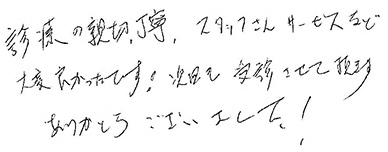 診療の親切、丁寧、スタッフさんサービスなど
大変良かったです！次回も受診させて頂きます
ありがとうございました！